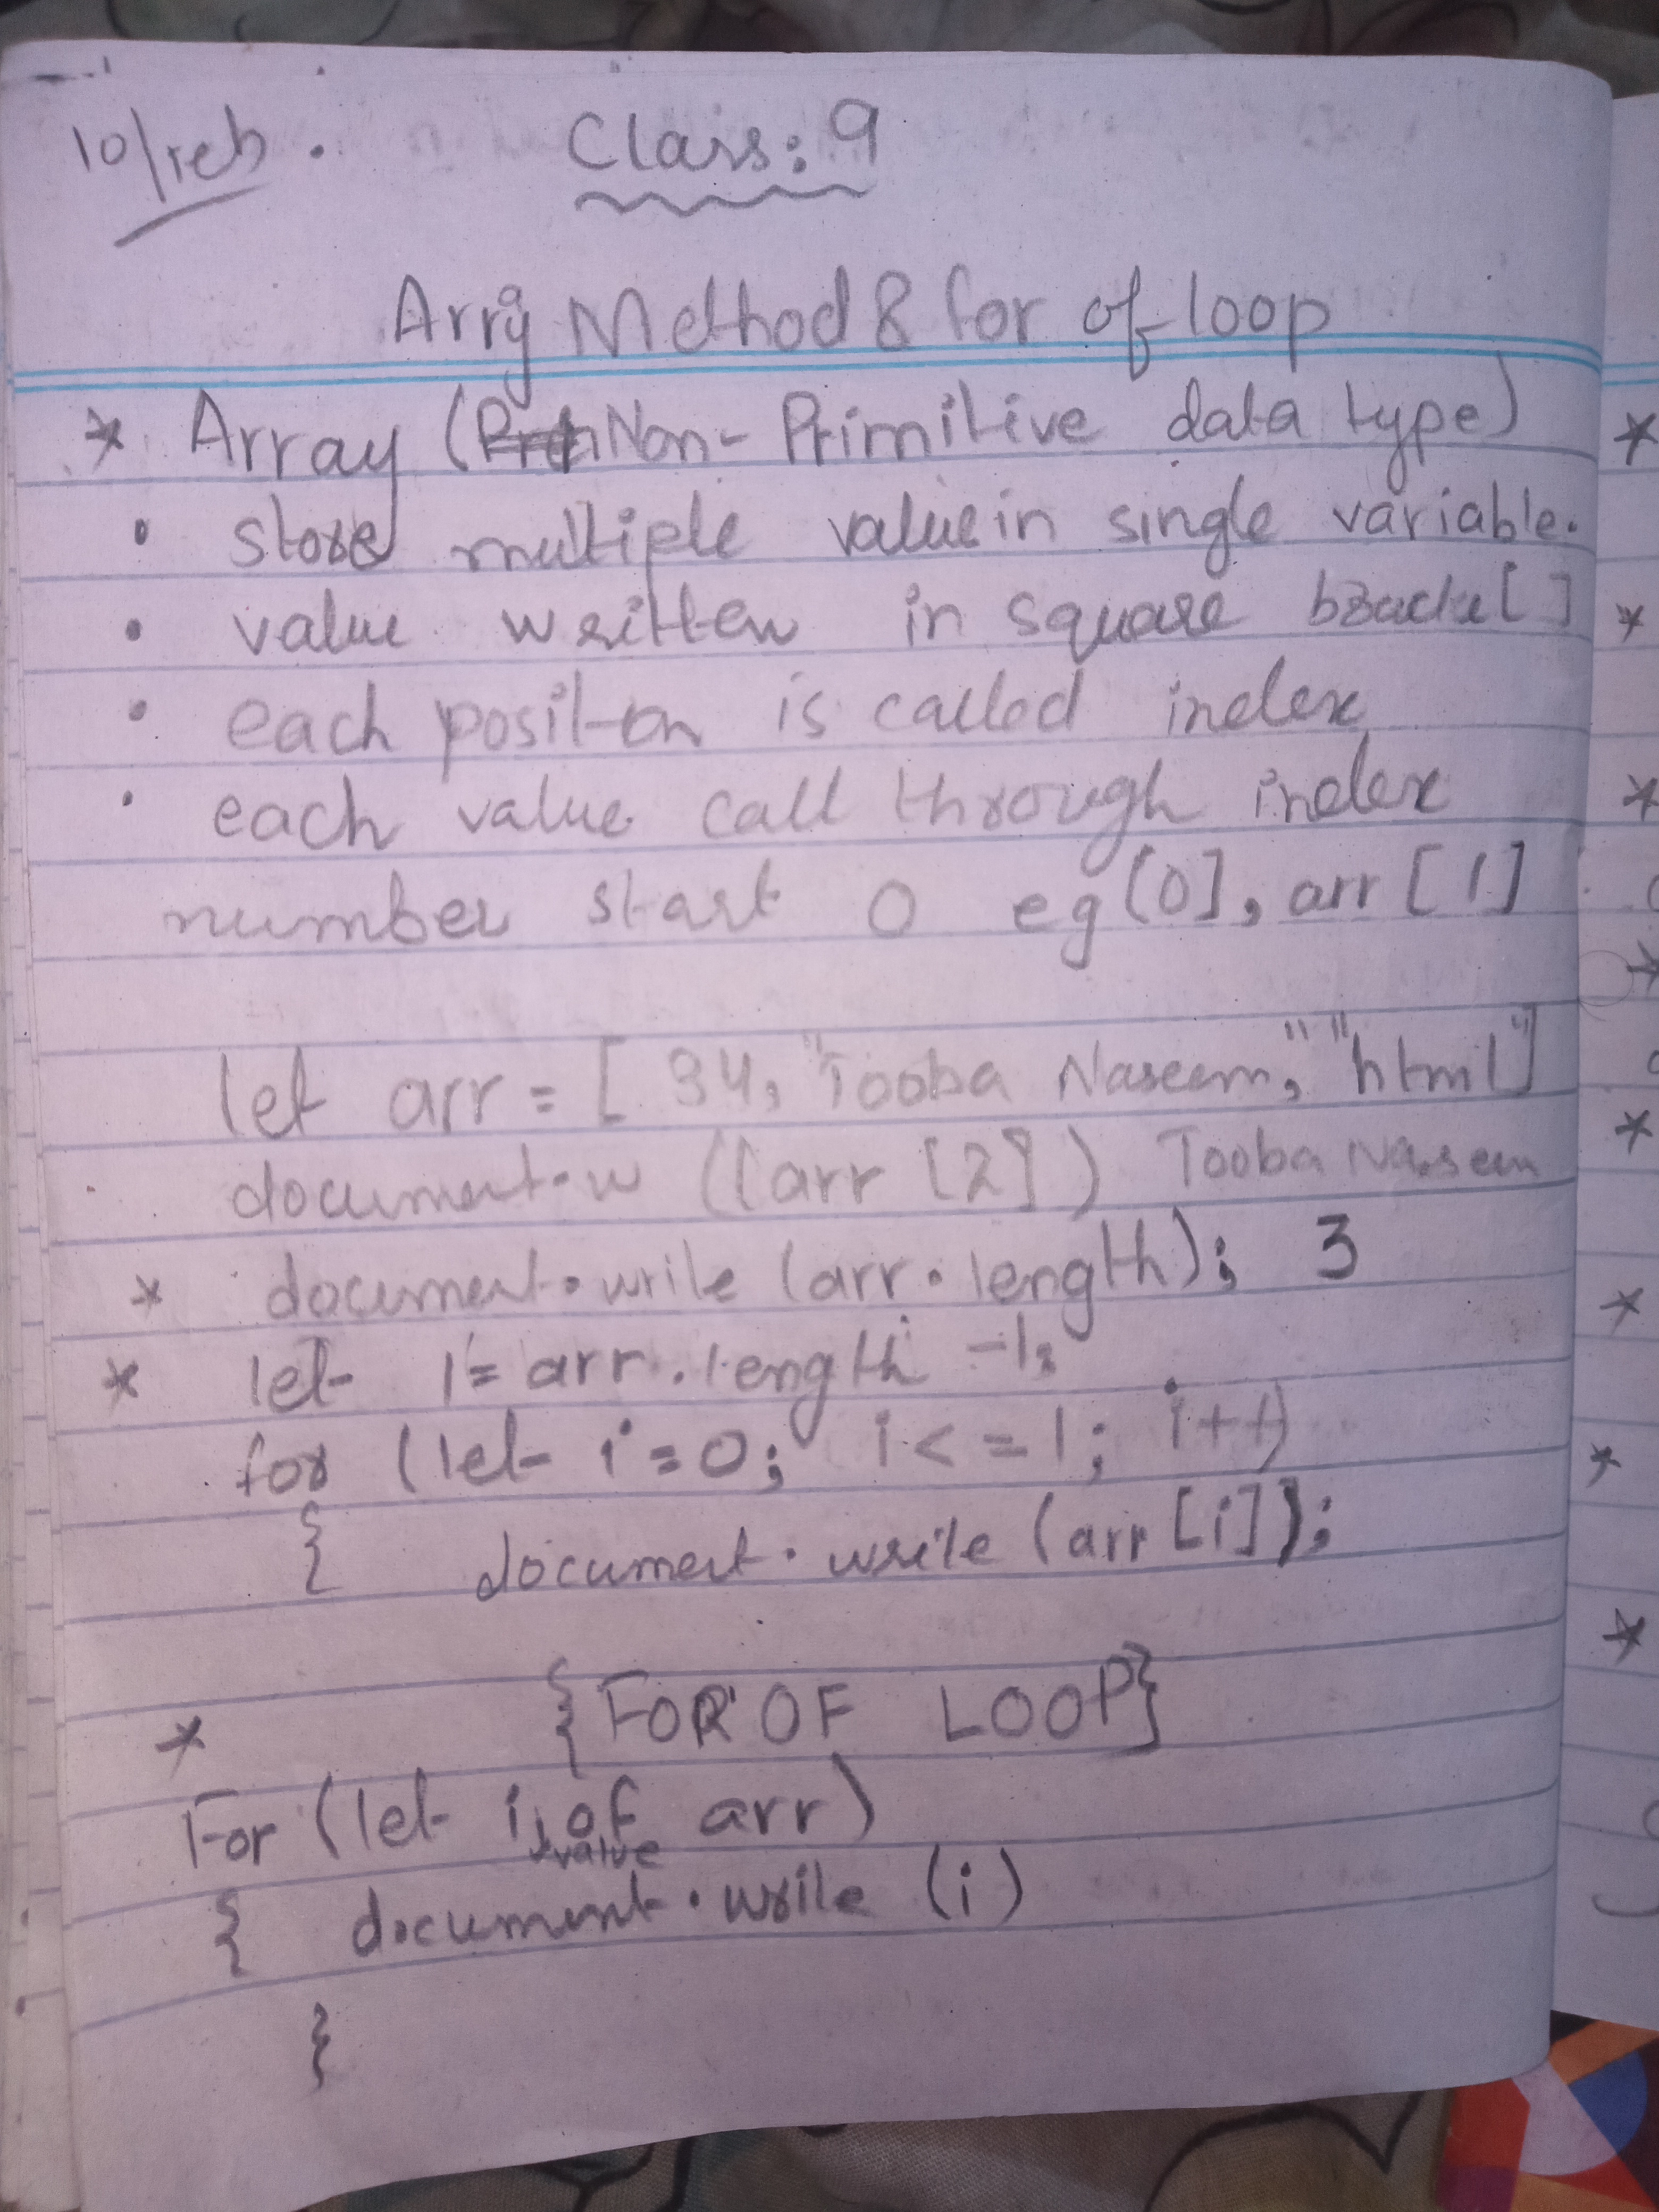 10/Feb.
Class: 9
Array Method & for of loop
* Array (Non-Primitive data type)
• store multiple value in single variable.
• value written in square bracke[ ]
• each position is called index
• each value call through index
number start 0 eg[0], arr[1]
let arr = [ 34, "Tooba Naseem," "html"]
document.w ((arr [2]) Tooba Naseem
* document.write (arr.length); 3
* let l = arr.length -1;
for (let i=0; i<=l; i++)
{ document.write (arr[i]);
* {FOR OF LOOP}
For (let i of arr)
value
{ document.write (i)
}